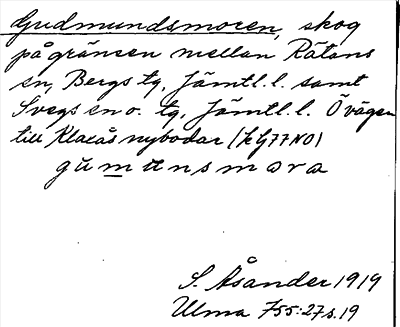 Gudmundsmoren, skog
på gränsen mellan Rätans
sn, Bergs tg, Jämtl. l. samt
Svegs sn o. tg, Jämtl. l. Ö vägen
till Klaxås nybodar (k G77NO)
gumunsmora
S. Åsander 1919
Ulma 755:27 s. 19